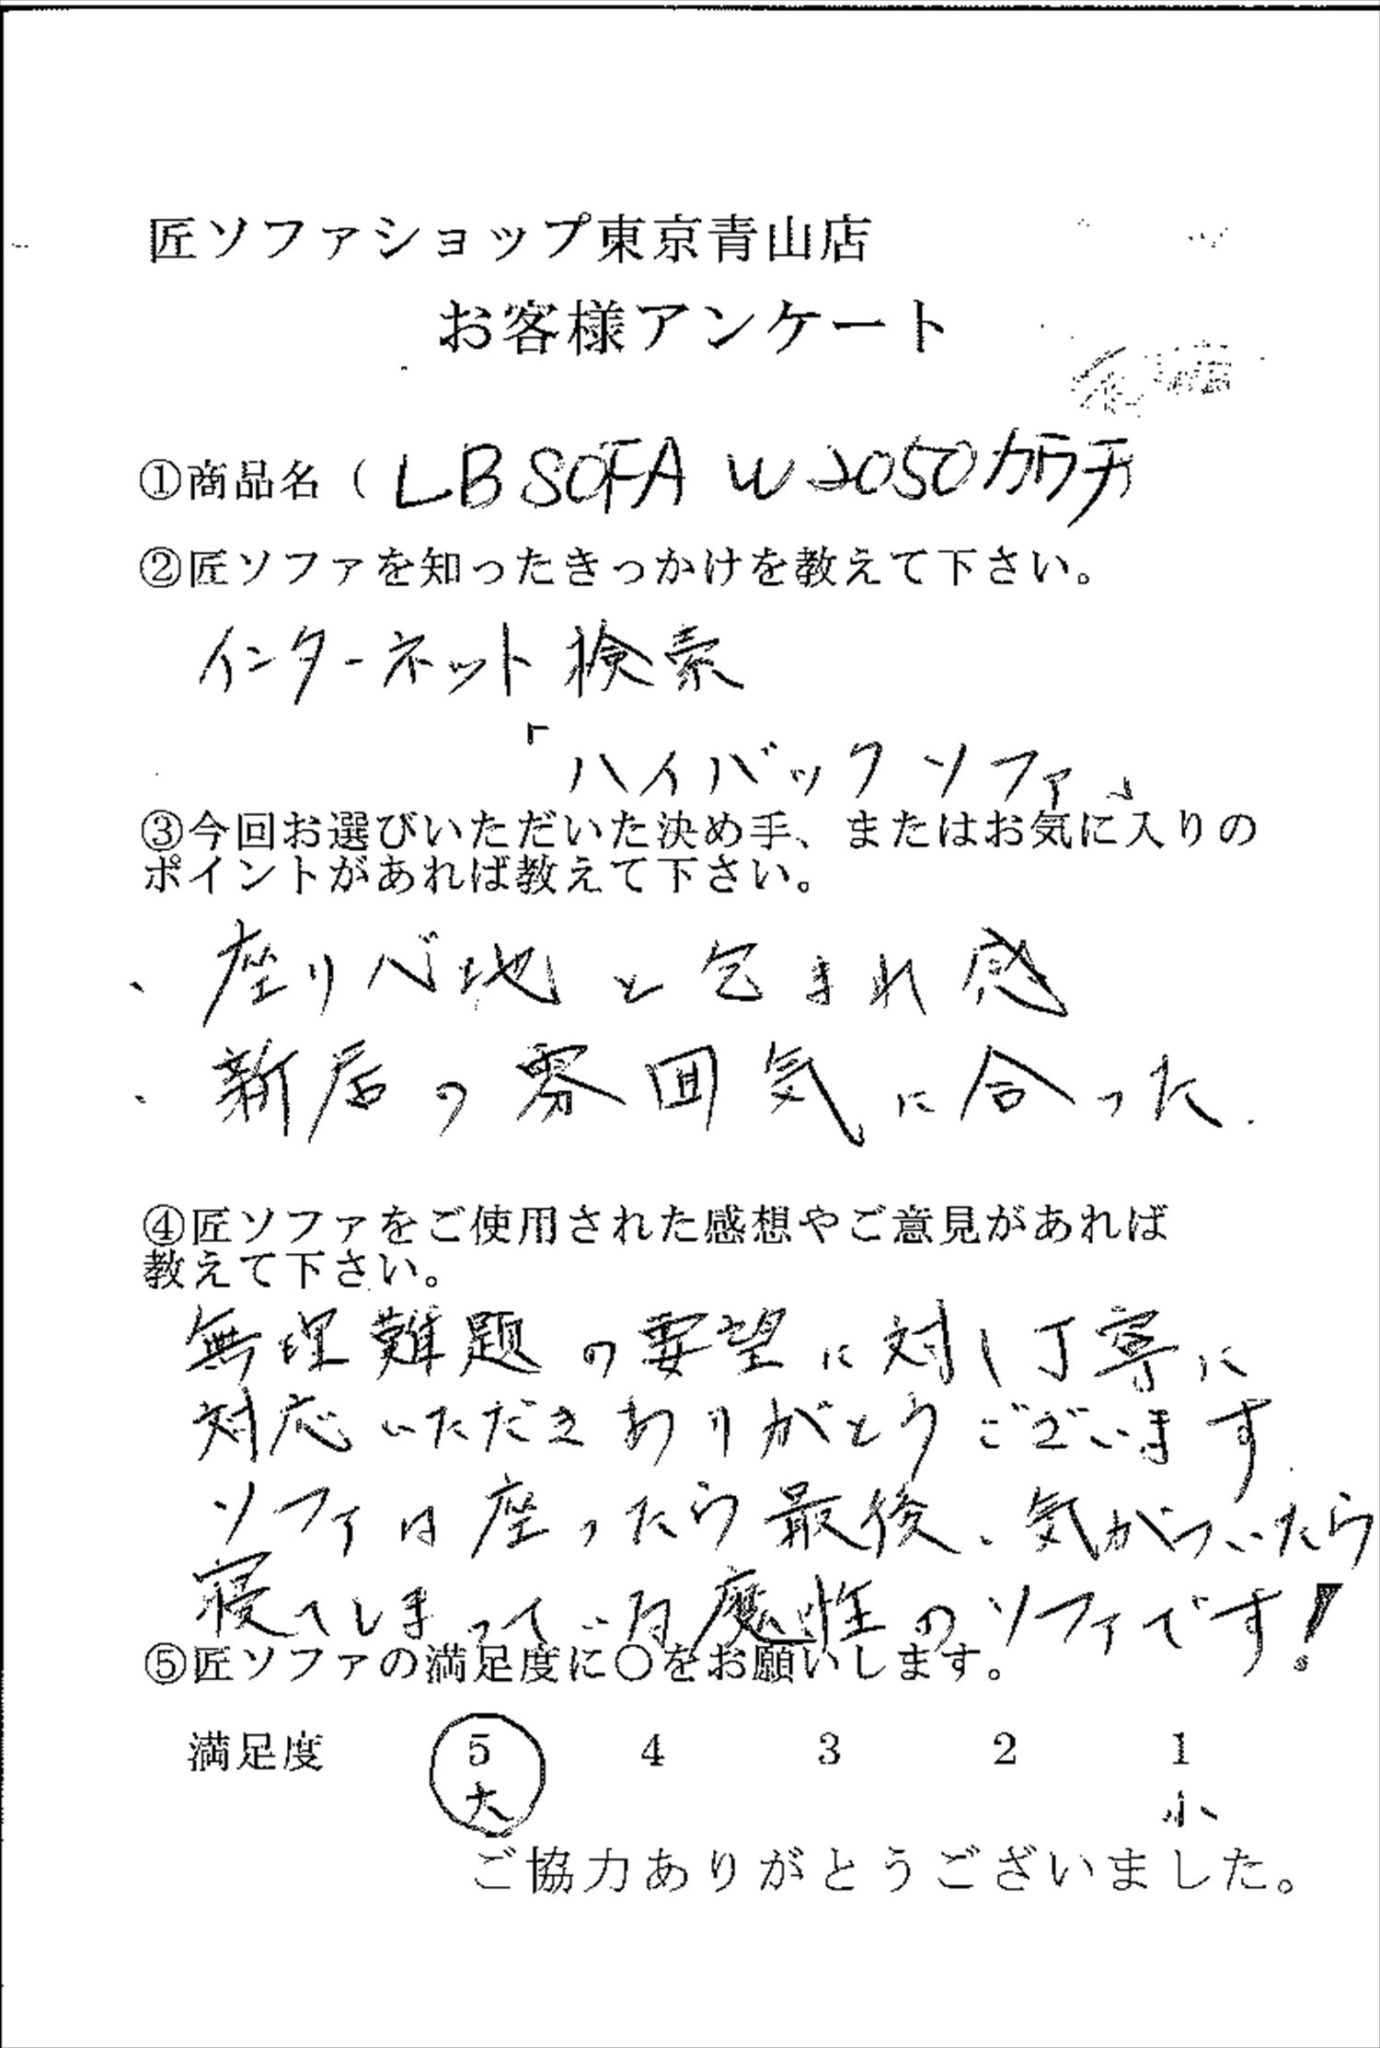 匠ソファショップ東京青山店
お客様アンケート
①商品名（ LB SOFA W2050カウチ
②匠ソファを知ったきっかけを教えて下さい。
インターネット検索
「ハイバックソファ」
③今回お選びいただいた決め手、またはお気に入りの
ポイントがあれば教えて下さい。
、座り心地と包まれ感
、新居の雰囲気に合った.
④匠ソファをご使用された感想やご意見があれば
教えて下さい。
無理難題の要望に対し丁寧に
対応いただきありがとうございます.
ソファは座ったら最後、気がついたら
寝てしまっている魔性のソファです！
⑤匠ソファの満足度に○をお願いします。
満足度 5 4 3 2 1
大 小
ご協力ありがとうございました。